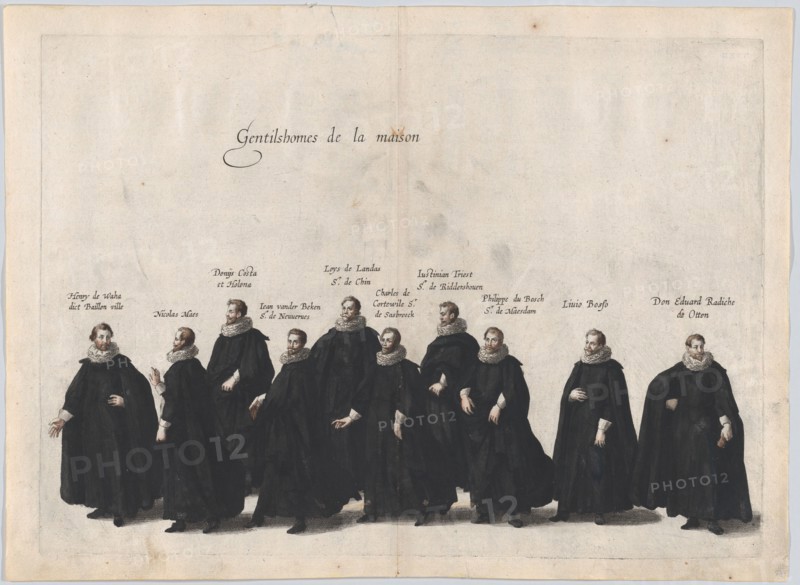 Gentilshomes de la maison
Henry de Waha
dict Baillen ville
Nicolas Maes
Denijs Costa
et Holena
Iean vander Beken
Sr. de Neuuernes
Loys de Landas
Sr. de Chin
Charles de
Sr.
Iustinian Triest
Sr. de Riddershouen
Philippe du Bosch
Sr. de Maesdam
Liuio Bosso
Don Eduard Radiche
de Otten
PHOTO12
PHOTO12
PHOTO12
PHOTO12
PHOTO12